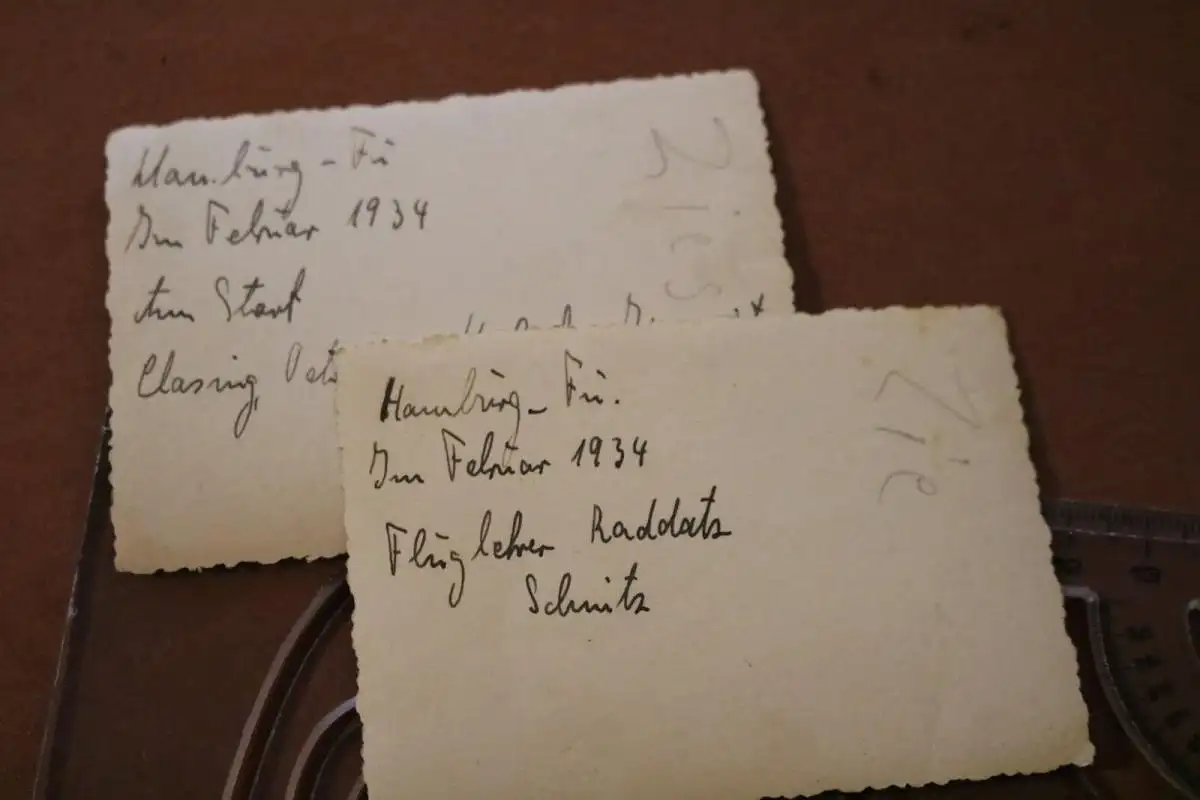 Hamburg - Fü
Im Februar 1934
Am Start
Clasing,
Hamburg - Fü.
Im Februar 1934
Fluglehrer Raddatz
Schmitz